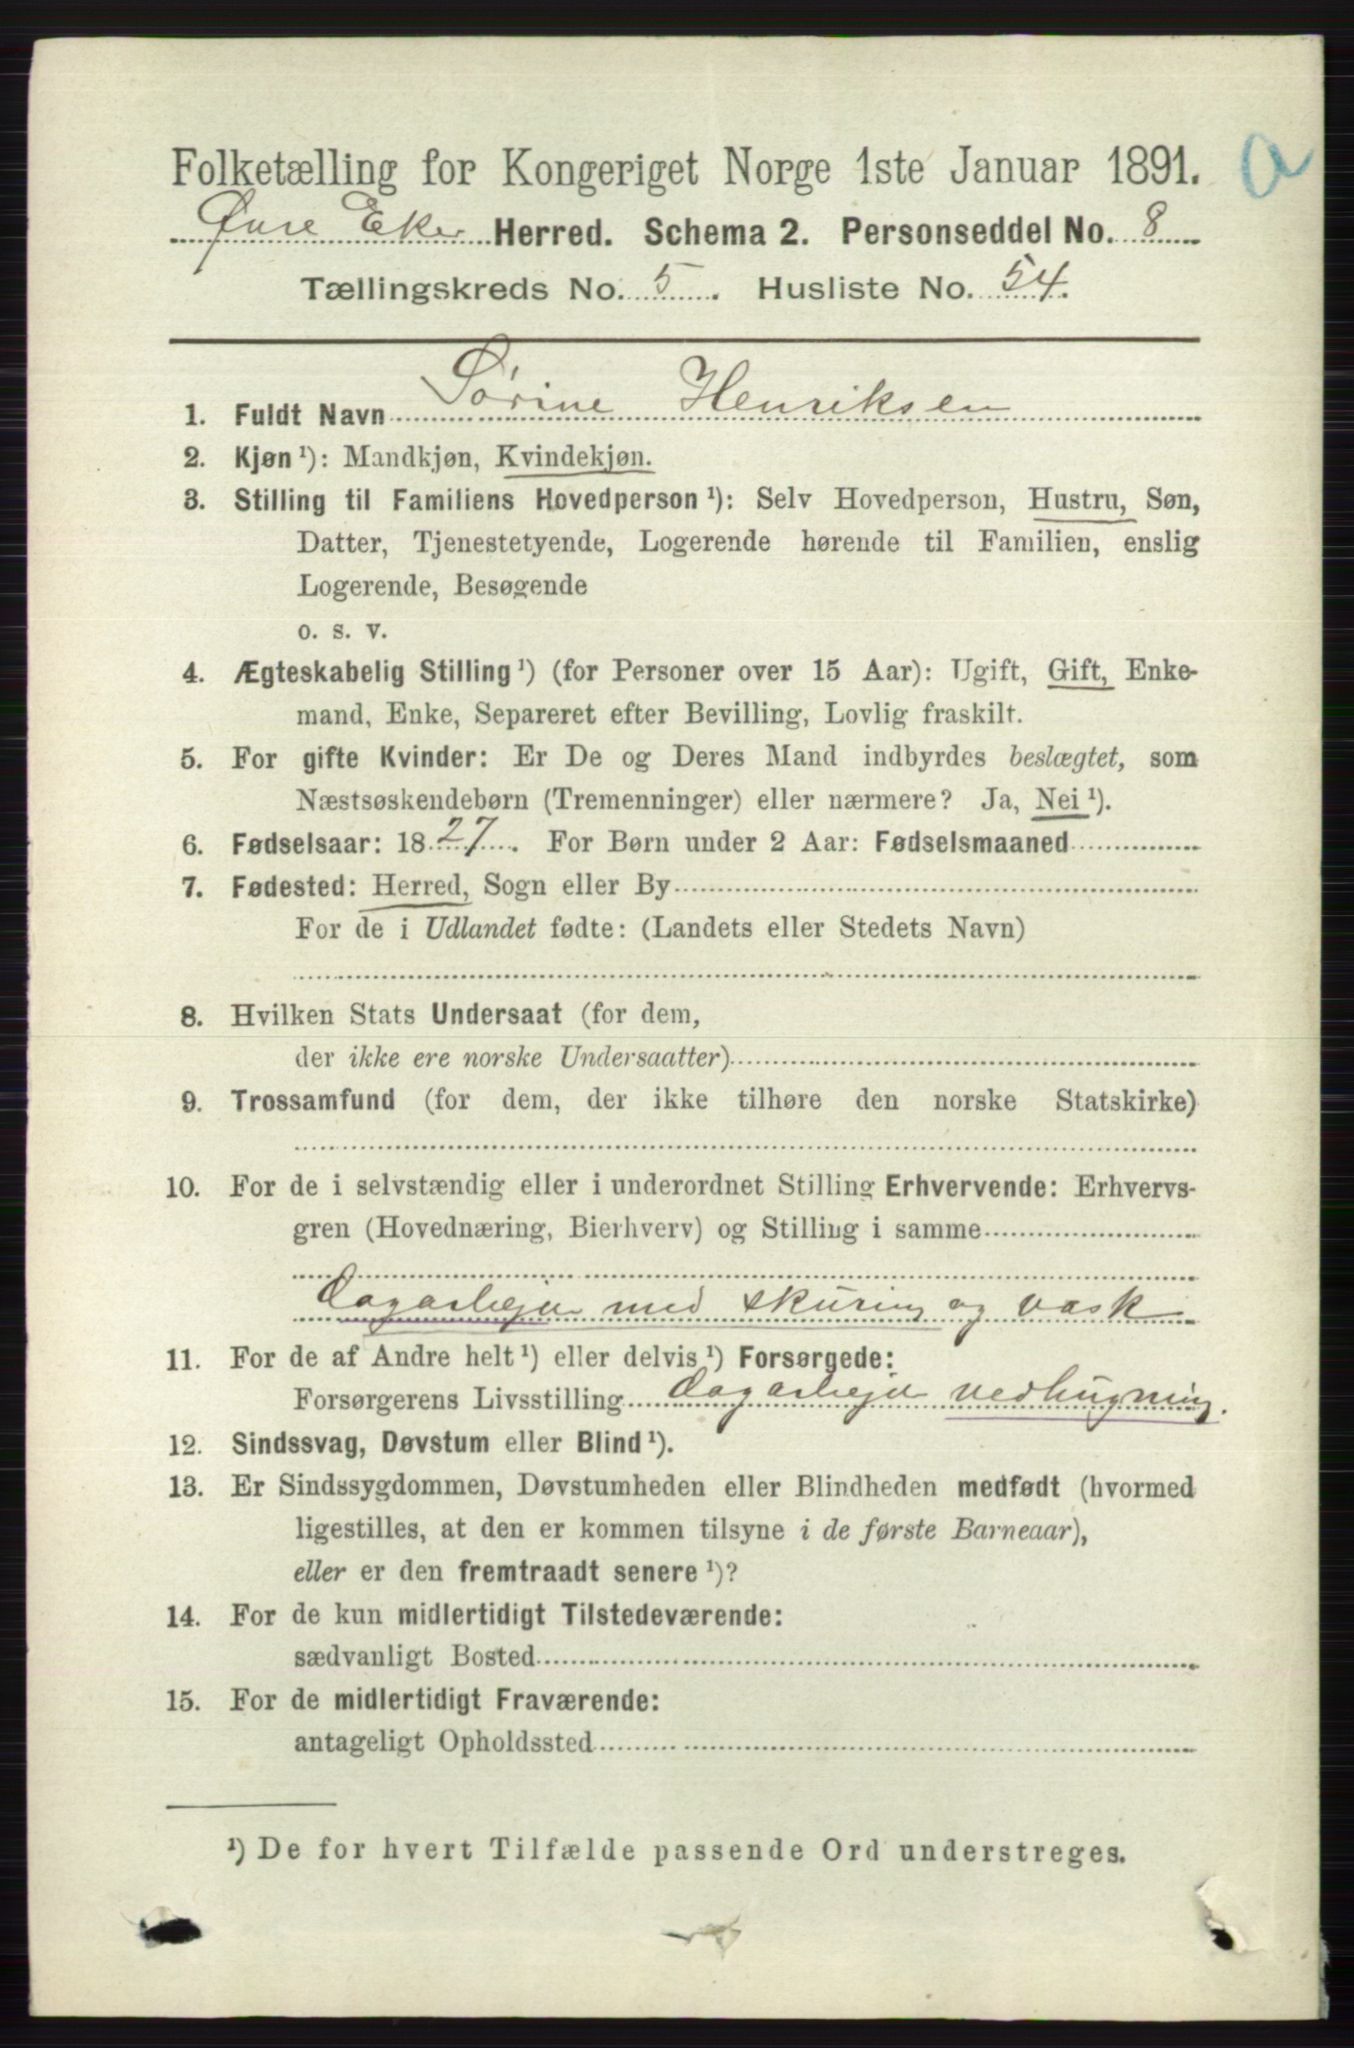 Folketælling for Kongeriget Norge 1ste Januar 1891.
a
Øvre Eker Herred. Schema 2. Personseddel No. 8
Tællingskreds No. 5. Husliste No. 54.
1. Fuldt Navn Sørine Henriksen
2. Kjøn ¹): Mandkjøn, Kvindekjøn.
3. Stilling til Familiens Hovedperson ¹): Selv Hovedperson, Hustru, Søn,
Datter, Tjenestetyende, Logerende hørende til Familien, enslig
Logerende, Besøgende
o. s. v.
4. Ægteskabelig Stilling ¹) (for Personer over 15 Aar): Ugift, Gift, Enke-
mand, Enke, Separeret efter Bevilling, Lovlig fraskilt.
5. For gifte Kvinder: Er De og Deres Mand indbyrdes beslægtet, som
Næstsøskendebørn (Tremenninger) eller nærmere? Ja, Nei ¹).
6. Fødselsaar: 1827. For Børn under 2 Aar: Fødselsmaaned
7. Fødested: Herred, Sogn eller By
For de i Udlandet fødte: (Landets eller Stedets Navn)
8. Hvilken Stats Undersaat (for dem,
der ikke ere norske Undersaatter)
9. Trossamfund (for dem, der ikke tilhøre den norske Statskirke)
10. For de i selvstændig eller i underordnet Stilling Erhvervende: Erhvervs-
gren (Hovednæring, Bierhverv) og Stilling i samme
Dagarbejde med skuring og vask
11. For de af Andre helt ¹) eller delvis ¹) Forsørgede:
Forsørgerens Livsstilling Dagarbejde vedhugning.
12. Sindssvag, Døvstum eller Blind ¹).
13. Er Sindssygdommen, Døvstumheden eller Blindheden medfødt (hvormed
ligestilles, at den er kommen tilsyne i de første Barneaar),
eller er den fremtraadt senere ¹)?
14. For de kun midlertidigt Tilstedeværende:
sædvanligt Bosted
15. For de midlertidigt Fraværende:
antageligt Opholdssted
¹) De for hvert Tilfælde passende Ord understreges.